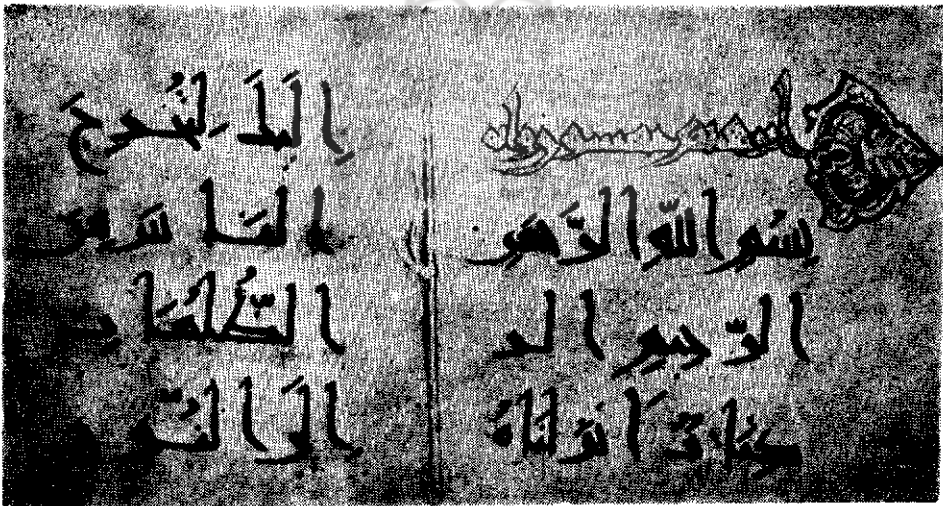 بسم الله الرحمن
الرحيم الر
كتاب انزلناه
اليك لتخرج
الناس من
الظلمات
الى النور